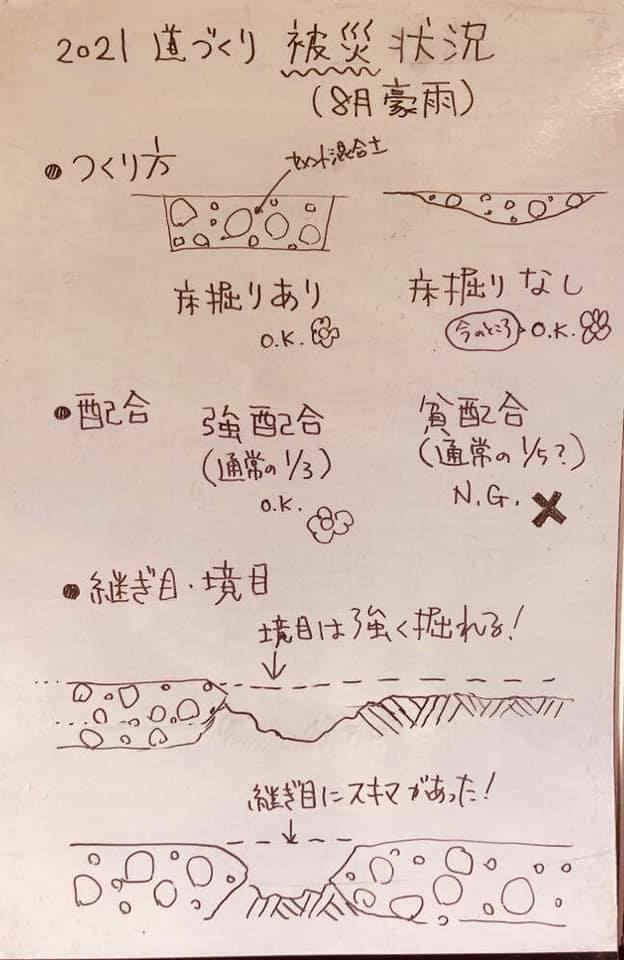 2021 道づくり 被災状況
(8月豪雨)
●つくり方
セメント混合土
床掘りあり
O.K.
床掘りなし
今のところ O.K.
●配合
強配合
(通常の1/3)
O.K.
貧配合
(通常の1/5?)
N.G.
●継ぎ目・境目
境目は強く掘れる!
継ぎ目にスキマがあった!